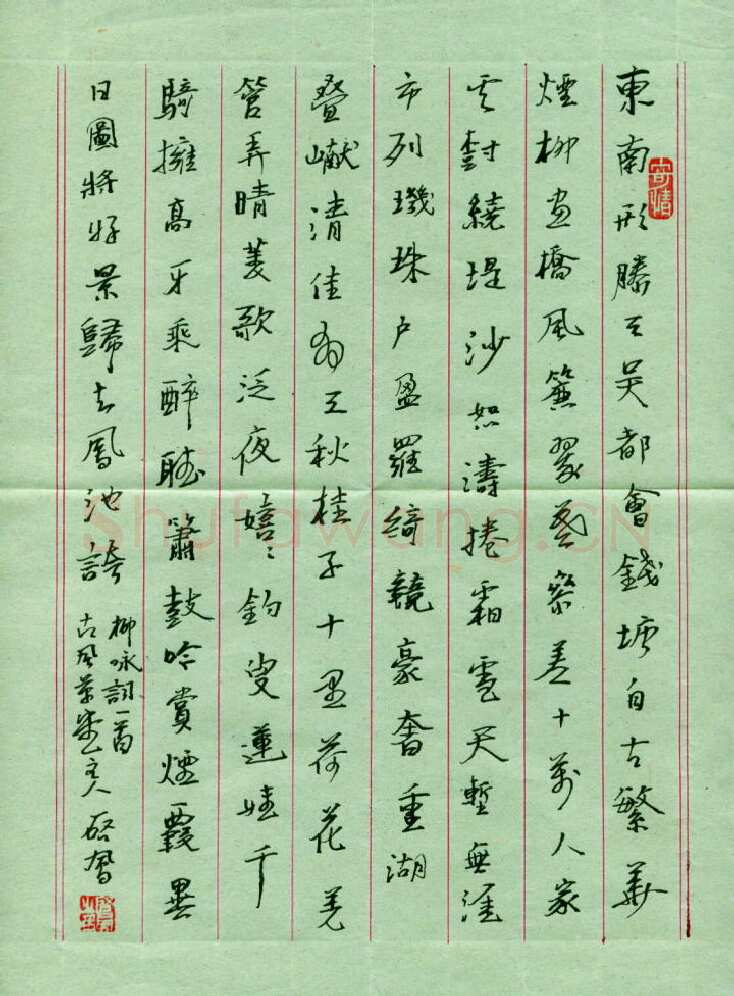 東南形勝三吳都會錢塘自古繁華
寄情
煙柳畫橋風簾翠幕參差十萬人家
雲樹繞堤沙怒濤捲霜雪天塹無涯
市列璣珠戶盈羅綺競豪奢重湖
疊巘清佳有三秋桂子十里荷花羌
管弄晴菱歌泛夜嬉〻釣叟蓮娃千
騎擁高牙乘醉聽簫鼓吟賞煙霞異
日圖將好景歸去鳳池誇
柳咏詞一首
古風草堂主人
Shufawang.CN